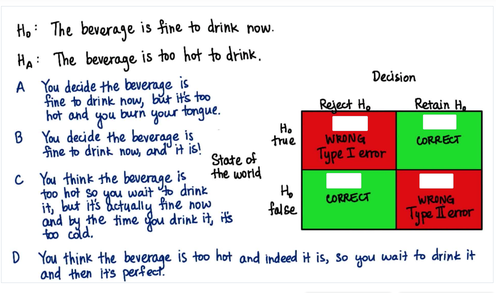 H₀: The beverage is fine to drink now.
Hᴀ: The beverage is too hot to drink.
A You decide the beverage is
fine to drink now, but it's too
hot and you burn your tongue.
B You decide the beverage is
fine to drink now, and it is!
C You think the beverage is
too hot so you wait to drink
it, but it's actually fine now
and by the time you drink it, it's
too cold.
D You think the beverage is too hot and indeed it is, so you wait to drink it
and then it's perfect.
Decision
Reject H₀ Retain H₀
State of
the world
H₀
true
WRONG
Type I error
CORRECT
H₀
false
CORRECT
WRONG
Type II error